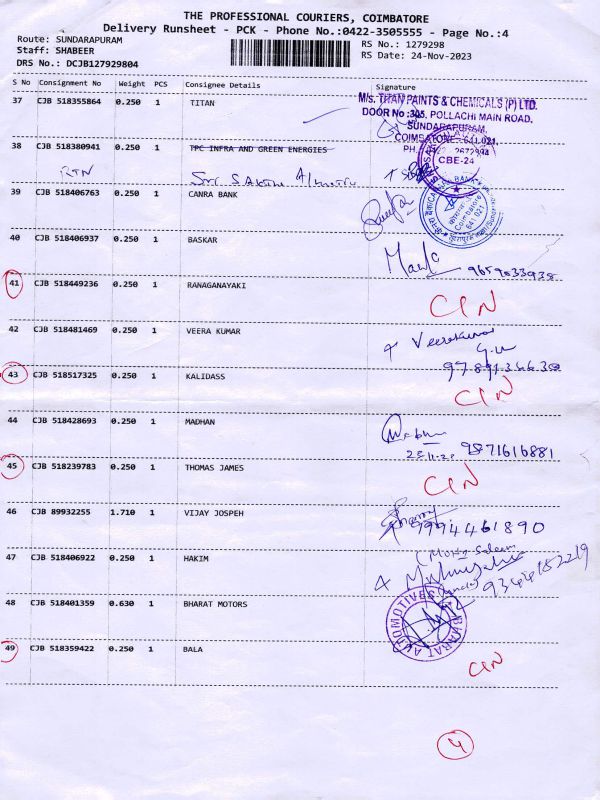 THE PROFESSIONAL COURIERS, COIMBATORE
Delivery Runsheet - PCK - Phone No.:0422-3505555 - Page No.:4
Route: SUNDARAPURAM
Staff: SHABEER
DRS No.: DCJB127929804
RS No.: 1279298
RS Date: 24-Nov-2023
S No Consignment No Weight PCS Consignee Details Signature
37 CJB 518355864 0.250 1 TITAN
M/s. TITAN PAINTS & CHEMICALS (P) LTD.
DOOR No :305, POLLACHI MAIN ROAD,
SUNDARAPURAM,
COIMBATORE - 641 021.
38 CJB 518380941 0.250 1 TPC INFRA AND GREEN ENERGIES
CBE-24
RTN
39 CJB 518406763 0.250 1 CANRA BANK
Coimbatore
641 021
40 CJB 518406937 0.250 1 BASKAR
9659033938
41 CJB 518449236 0.250 1 RANAGANAYAKI
CIN
42 CJB 518481469 0.250 1 VEERA KUMAR
Veerakumar
43 CJB 518517325 0.250 1 KALIDASS
CIN
44 CJB 518428693 0.250 1 MADHAN
9871616881
45 CJB 518239783 0.250 1 THOMAS JAMES
CIN
46 CJB 89932255 1.710 1 VIJAY JOSPEH
9994461890
47 CJB 518406922 0.250 1 HAKIM
9344182219
48 CJB 518401359 0.630 1 BHARAT MOTORS
BHARAT AUTOMOTIVES
49 CJB 518359422 0.250 1 BALA
CIN
4